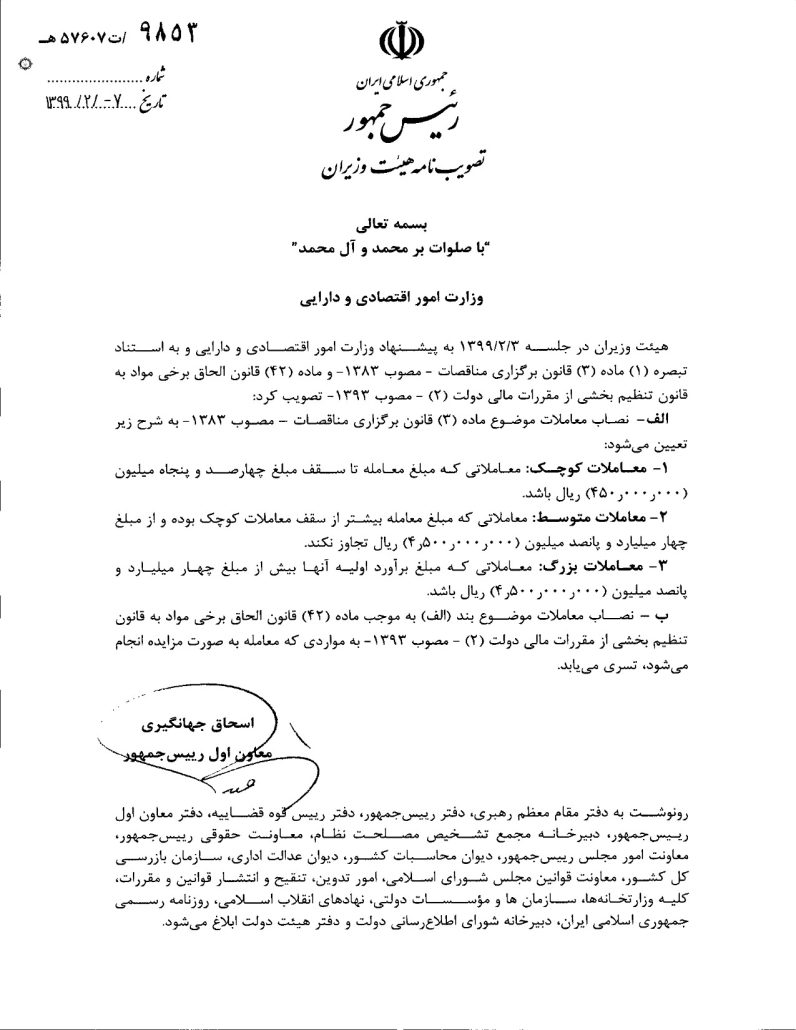 ۹۸۵۳ /ت۵۷۶۰۷ هـ
شماره ......................
تاریخ ....۱۳۹۹/۲/۰۷
جمهوری اسلامی ایران
رئیس جمهور
تصویب نامه هیئت وزیران
بسمه تعالی
"با صلوات بر محمد و آل محمد"
وزارت امور اقتصادی و دارایی
هیئت وزیران در جلسه ۱۳۹۹/۲/۳ به پیشنهاد وزارت امور اقتصادی و دارایی و به استناد
تبصره (۱) ماده (۳) قانون برگزاری مناقصات - مصوب ۱۳۸۳- و ماده (۴۲) قانون الحاق برخی مواد به
قانون تنظیم بخشی از مقررات مالی دولت (۲) - مصوب ۱۳۹۳- تصویب کرد:
الف- نصاب معاملات موضوع ماده (۳) قانون برگزاری مناقصات – مصوب ۱۳۸۳- به شرح زیر
تعیین می‌شود:
۱- معاملات کوچک: معاملاتی که مبلغ معامله تا سقف مبلغ چهارصد و پنجاه میلیون
(۴۵۰٫۰۰۰٫۰۰۰) ریال باشد.
۲- معاملات متوسط: معاملاتی که مبلغ معامله بیشتر از سقف معاملات کوچک بوده و از مبلغ
چهار میلیارد و پانصد میلیون (۴٫۵۰۰٫۰۰۰٫۰۰۰) ریال تجاوز نکند.
۳- معاملات بزرگ: معاملاتی که مبلغ برآورد اولیه آنها بیش از مبلغ چهار میلیارد و
پانصد میلیون (۴٫۵۰۰٫۰۰۰٫۰۰۰) ریال باشد.
ب – نصاب معاملات موضوع بند (الف) به موجب ماده (۴۲) قانون الحاق برخی مواد به قانون
تنظیم بخشی از مقررات مالی دولت (۲) - مصوب ۱۳۹۳- به مواردی که معامله به صورت مزایده انجام
می‌شود، تسری می‌یابد.
اسحاق جهانگیری
معاون اول رییس‌جمهور
رونوشت به دفتر مقام معظم رهبری، دفتر رییس‌جمهور، دفتر رییس قوه قضاییه، دفتر معاون اول
رییس‌جمهور، دبیرخانه مجمع تشخیص مصلحت نظام، معاونت حقوقی رییس‌جمهور،
معاونت امور مجلس رییس‌جمهور، دیوان محاسبات کشور، دیوان عدالت اداری، سازمان بازرسی
کل کشور، معاونت قوانین مجلس شورای اسلامی، امور تدوین، تنقیح و انتشار قوانین و مقررات،
کلیه وزارتخانه‌ها، سازمان ها و مؤسسات دولتی، نهادهای انقلاب اسلامی، روزنامه رسمی
جمهوری اسلامی ایران، دبیرخانه شورای اطلاع‌رسانی دولت و دفتر هیئت دولت ابلاغ می‌شود.